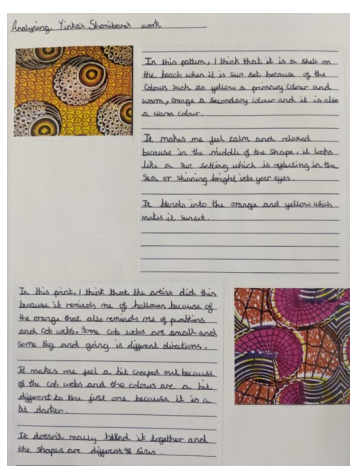 Analysing Yinka's Shonibare's work
In this pattern, I think that it is a shell on
the beach when it is sun set because of the
colours such as yellow a primary colour and
warm, orange a secondary colour and it is also
a warm colour.
It makes me feel calm and relaxed
because in the middle of the shape, it looks
like a sun setting which is reflecting in the
sea or shinning bright into your eyes.
It blends into the orange and yellow which
makes it sunset.
In this print, I think that the artist did this
because it reminds me of hallows because of
the orange that also reminds me of pumkins
and cob webs. Some cob webs are small and
some big and going in different directions.
It makes me feel a bit creeped out because
of the cob webs and the colours are a bit
different to the first one because it is a
bit darker.
It doesn't really blend it together and
the shapes are different sizes.